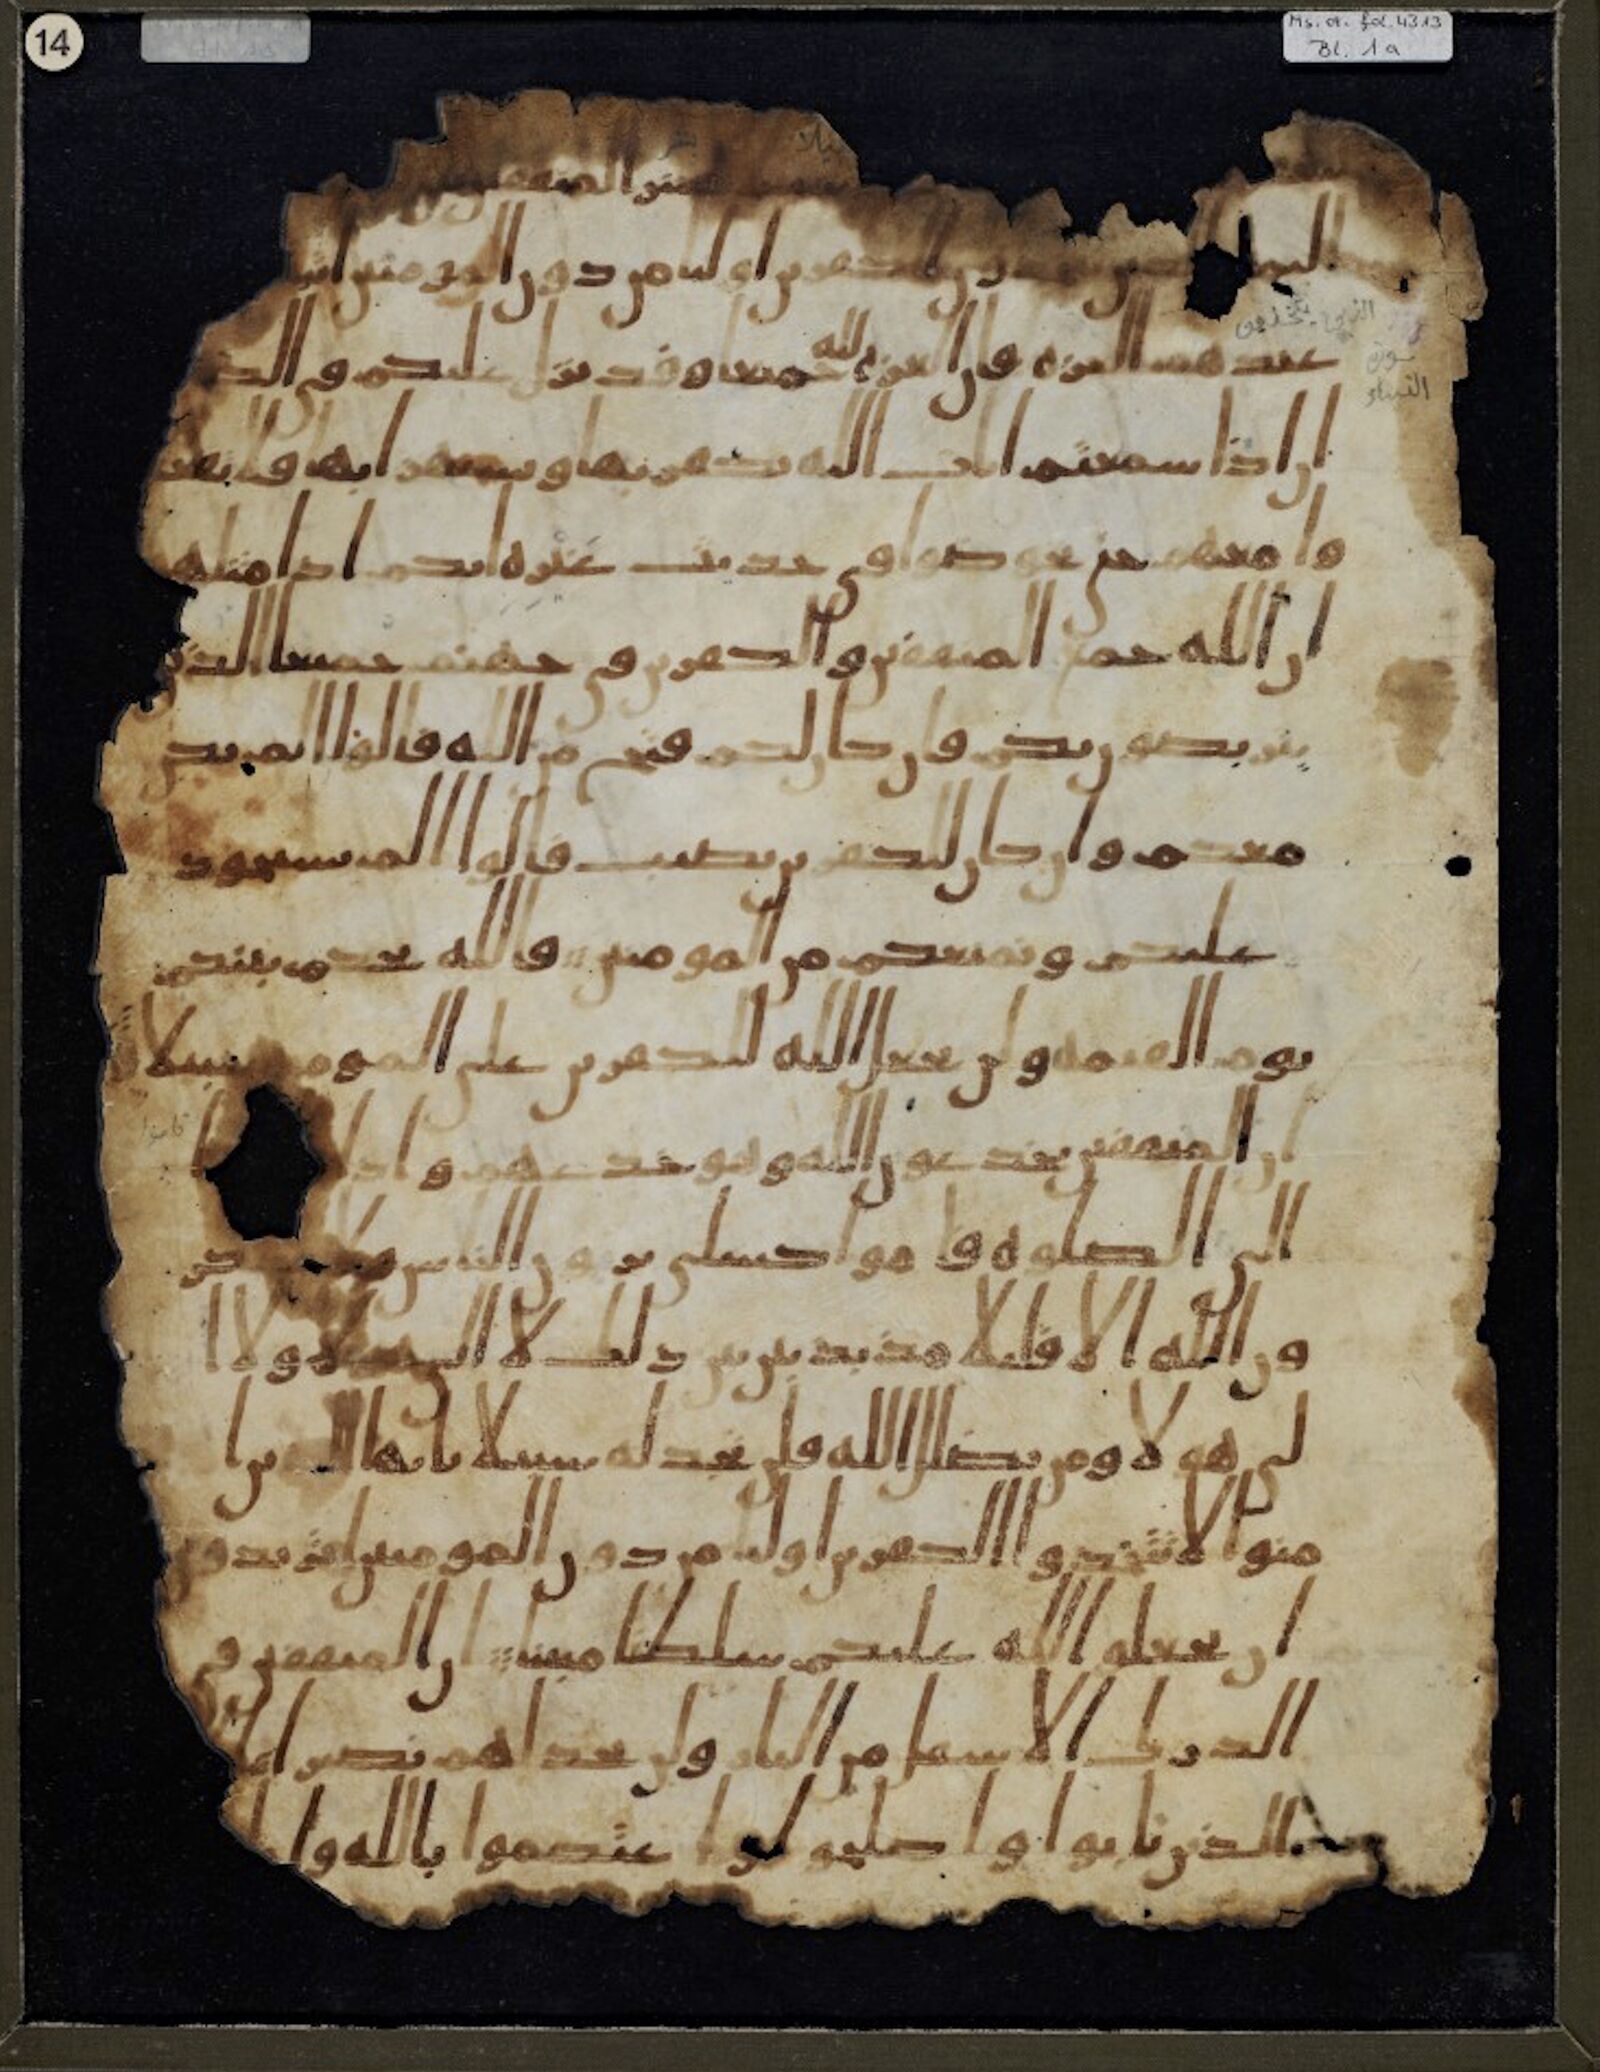 14
Ms. or. fol. 4313
Bl. 1a
بشر المنفقين
اليما الذين يتخذون الكفرين اوليا من دون المومنين
الذين يتخذون
سورة
النساء
عندهم العزه فان العزه لله جميعا وقد نزل عليكم في
ان اذا سمعتم ايت الله يكفر بها ويستهزا بها فلا تقعد
وا معهم حتى يخوضوا في حديث غيره انكم اذا مثلهم
ان الله جمع المنفقين والكفرين في جهنم جميعا الذين
يتربصون بكم فان كان لكم فتح من الله قالوا الم نكن
معكم وان كان للكفرين نصيب قالوا الم نستحوذ
عليكم ونمنعكم من المومنين فالله يحكم بينكم
يوم القيمه ولن يجعل الله للكفرين على المومنين سبيلا
ان المنفقين يخدعون الله وهو خدعهم واذا
قاموا
الى الصلوه قاموا كسلى يرون الناس ولا يذكر
ون الله الا قليلا مذبذبين بين ذلك لا الى هولا ولا ا
لى هولا ومن يضلل الله فلن تجد له سبيلا يايها الذين ا
منوا لا تتخذوا الكفرين اوليا من دون المومنين اتريدون
ان تجعلوا لله عليكم سلطنا مبينا ان المنفقين في
الدرك الاسفل من النار ولن تجد لهم نصيرا الا
الذين تابوا واصلحوا واعتصموا بالله وا